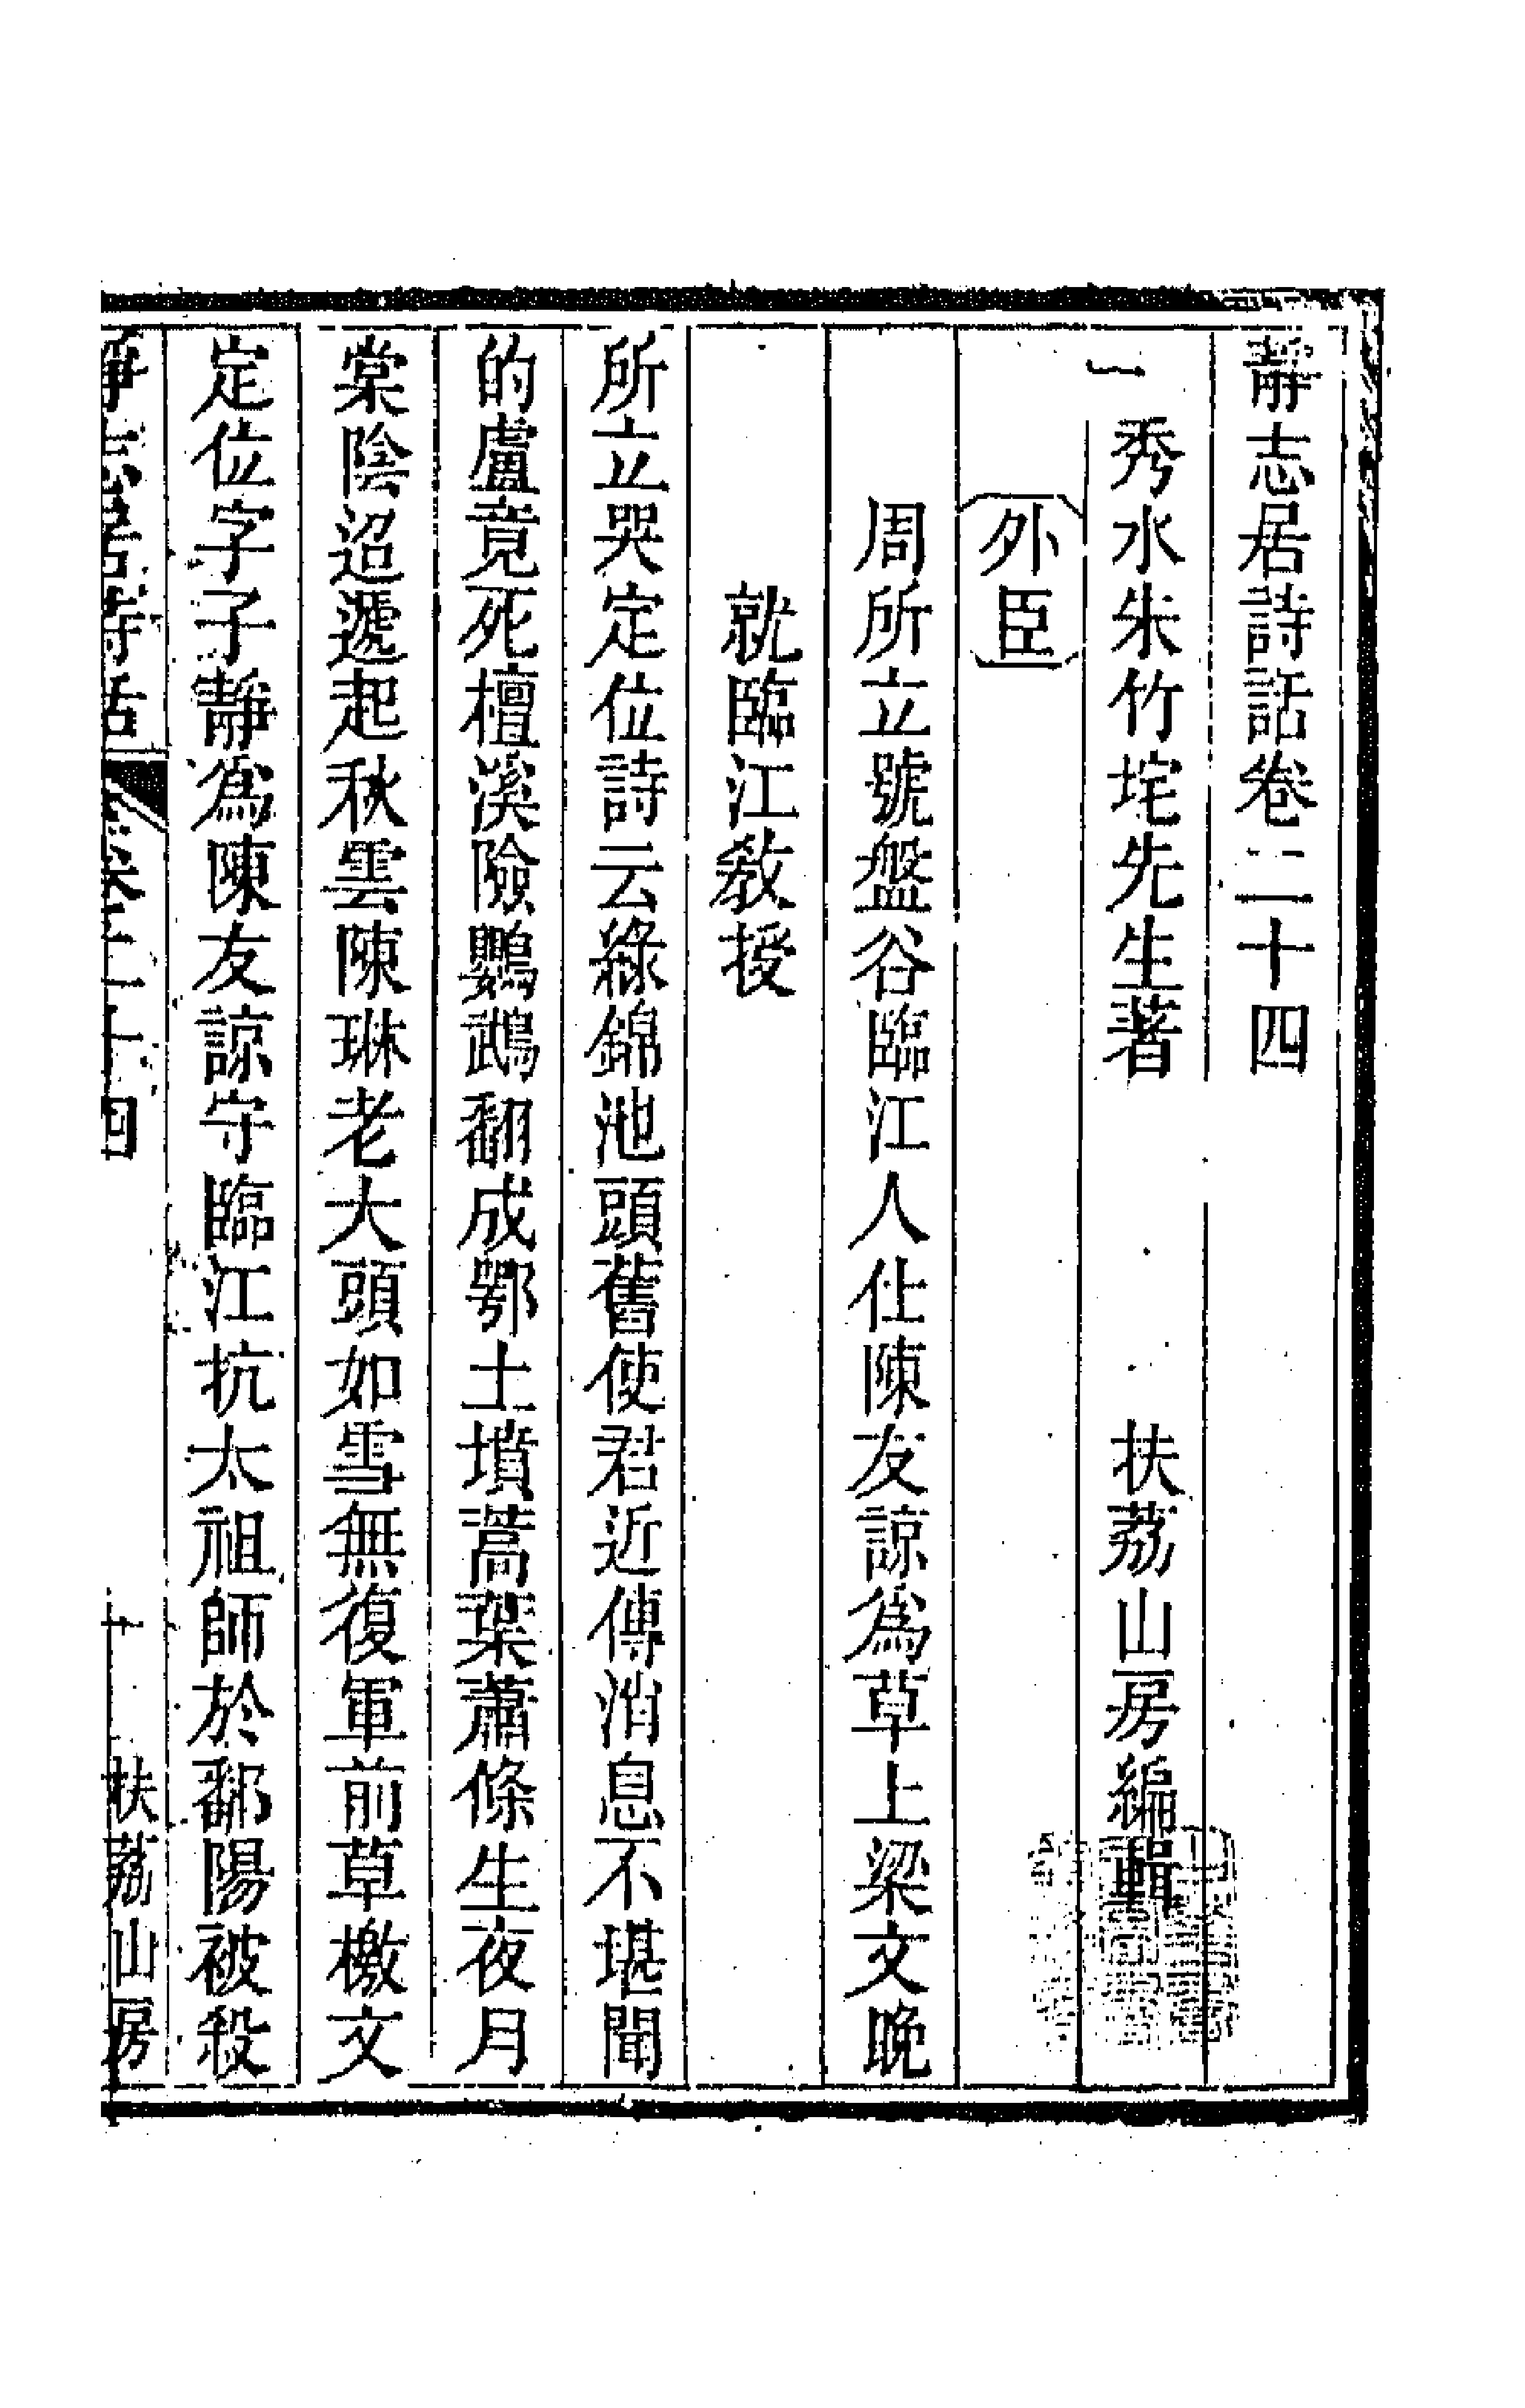 靜志居詩話卷二十四
秀水朱竹垞先生著 扶荔山房編輯
外臣
周所立號盤谷臨江人仕陳友諒爲草上梁文晚
就臨江敎授
所立哭定位詩云綠錦池頭舊使君近傳消息不堪聞
的盧竟死檀溪險鸚鵡翻成鄂土墳蒿葉蕭條生夜月
棠陰迢遞起秋雲陳琳老大頭如雪無復軍前草檄文
定位字子靜爲陳友諒守臨江抗太祖師於鄱陽被殺
靜志居詩話 卷二十四 一 扶荔山房